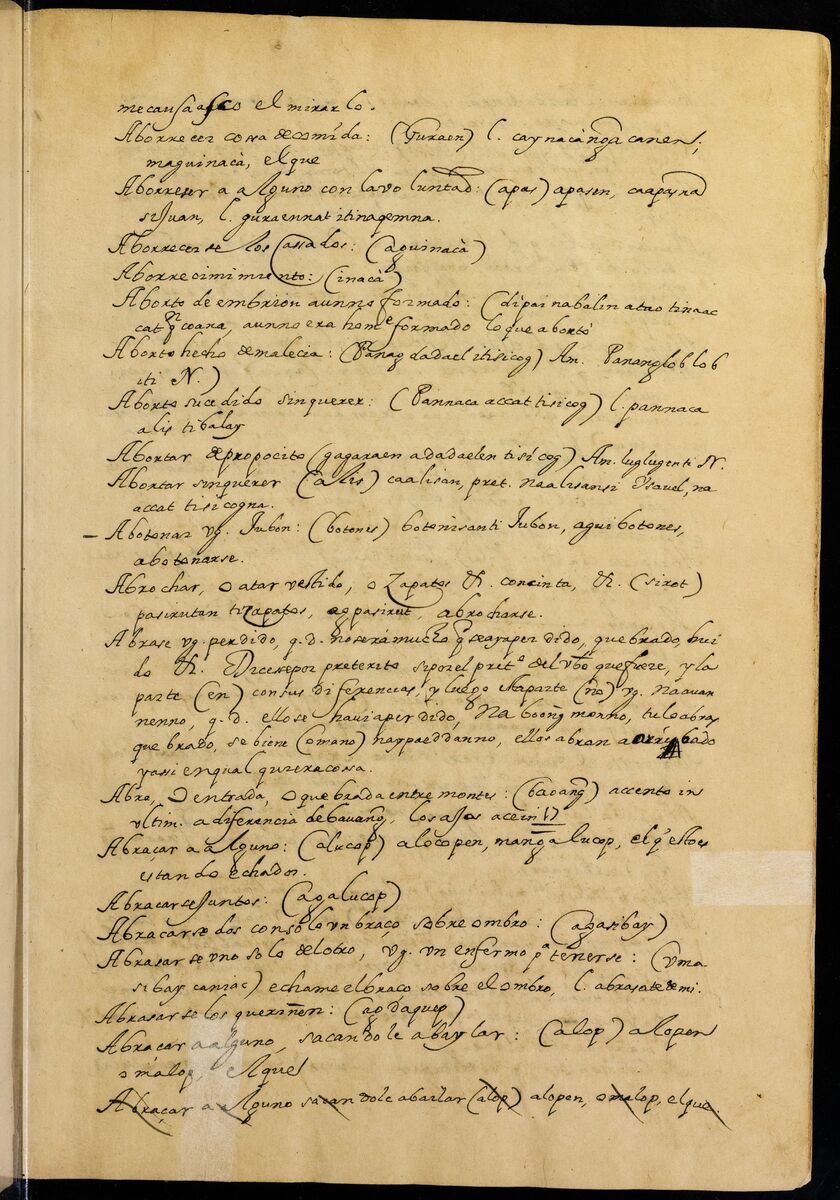 me causa asco el mirarlo.
Aborrecer cossa de comida: (Guraen) l. caynacànga canen l,
maguinacà, el que
Aborreser a alguno con la voluntad: (apas) apasen, caapasna
si Juan, l. guraennat itinagemna.
Aborrecerse los Cassados: (aguinacà)
Aborrecimimiento: (inacà)
Aborto de embrion aun no formado: (dipai nabalin a tao tinaac
cat qn coana, aun no era home formado lo que abortó
Aborto hecho de malecia: (Panag dadael itisicog) Am. Panangloblob
iti N.)
Aborto sucedido sin querer: (Pannaca accat tisicog) l. pannaca
alis tibalay
Abortar de proposito (gagaraen a dadaelen tisicog) Am. luglugenti N.
Abortar sin querer (alis) caalisan, pret. naalisansi Ysavel, na
accat tisicogna.
Abotonar vg. Jubon: (botones) botonisanti Jubon, agui botones,
abotonarse.
Abrochar, o atar vestido, o Zapatos &. con cinta, &. (sirot)
pasirutan tizapatos, agpasirut, abrocharse.
Abrase vg. perdido, q. d. no será mucho q se aya perdido, quebrado, hui
do &. Dicese por preterito si por el prito del vbo que fuere, y la
parte (en) con sus diferencias, y luego la parte (no) vg. Naauan
nenno, q. d. ello se havia perdido, Na boong monno, tu lo abras
quebrado, se bione (omano) naypaeddanno, ellos abran arribado
y asi en qualquiera cosa.
Abra, o entrada, o quebrada entre montes: (baoang) accento in
vltim. a diferencia de bauang, los ajos ace in 17
Abraçar a alguno: (alucop) alocopen, mangalucop, el q esto es
estando echados.
Abracarse Juntos: (agalucop)
Abraçarse dos con solo vn braço sobre ombro: (agasibay)
Abrasarse vno solo del otro, vg. vn enfermo pa tenerse: (vma-
sibay caniac) echame el braço sobre el ombro, l. abrasate de mi.
Abrasarse los que riñen: (agdaquep)
Abraçar a alguno, sacandole a baylar: (alop) alopen
omalop, el que
Abraçar a alguno sacandole a bailar (alop) alopen, omalop, el que.